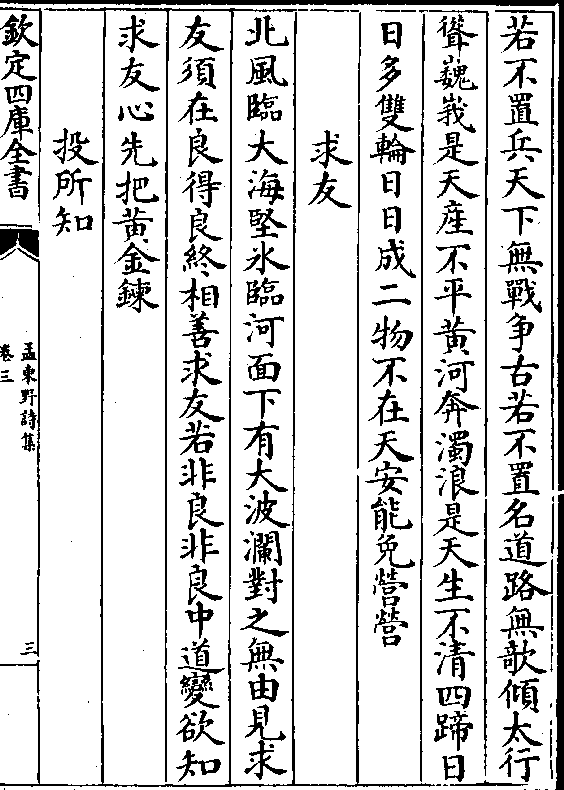 若不置兵天下無戰争古若不置名道路無欹傾太行
聳巍峩是天産不平黄河奔濁浪是天生不清四蹄日
日多雙輪日日成二物不在天安能免營營
求友
北風臨大海堅氷臨河面下有大波瀾對之無由見求
友須在良得良終相善求友若非良非良中道變欲知
求友心先把黄金鍊
投所知
欽定四庫全書
孟東野詩集
卷三
三